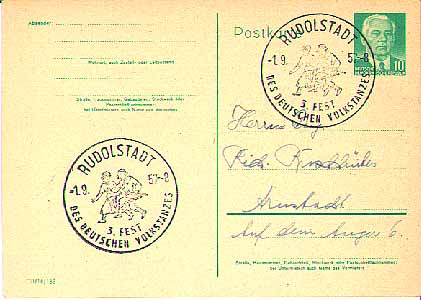 Absender:
Wohnort, auch Zustell- oder Leitpostamt
Straße, Hausnummer, Gebäudeteil, Stockwerk oder
Postschließfachnummer;
bei Untermietern auch Name des Vermieters
Postkarte
RUDOLSTADT
-1.9. 57-8
3. FEST
DES DEUTSCHEN VOLKSTANZES
10
Herrn
Arnstadt
Auf dem Anger 6.
RUDOLSTADT
-1.9. 57-8
3. FEST
DES DEUTSCHEN VOLKSTANZES
Straße, Hausnummer, Gebäudeteil, Stockwerk oder Postschließfachnummer;
bei Untermietern auch Name des Vermieters